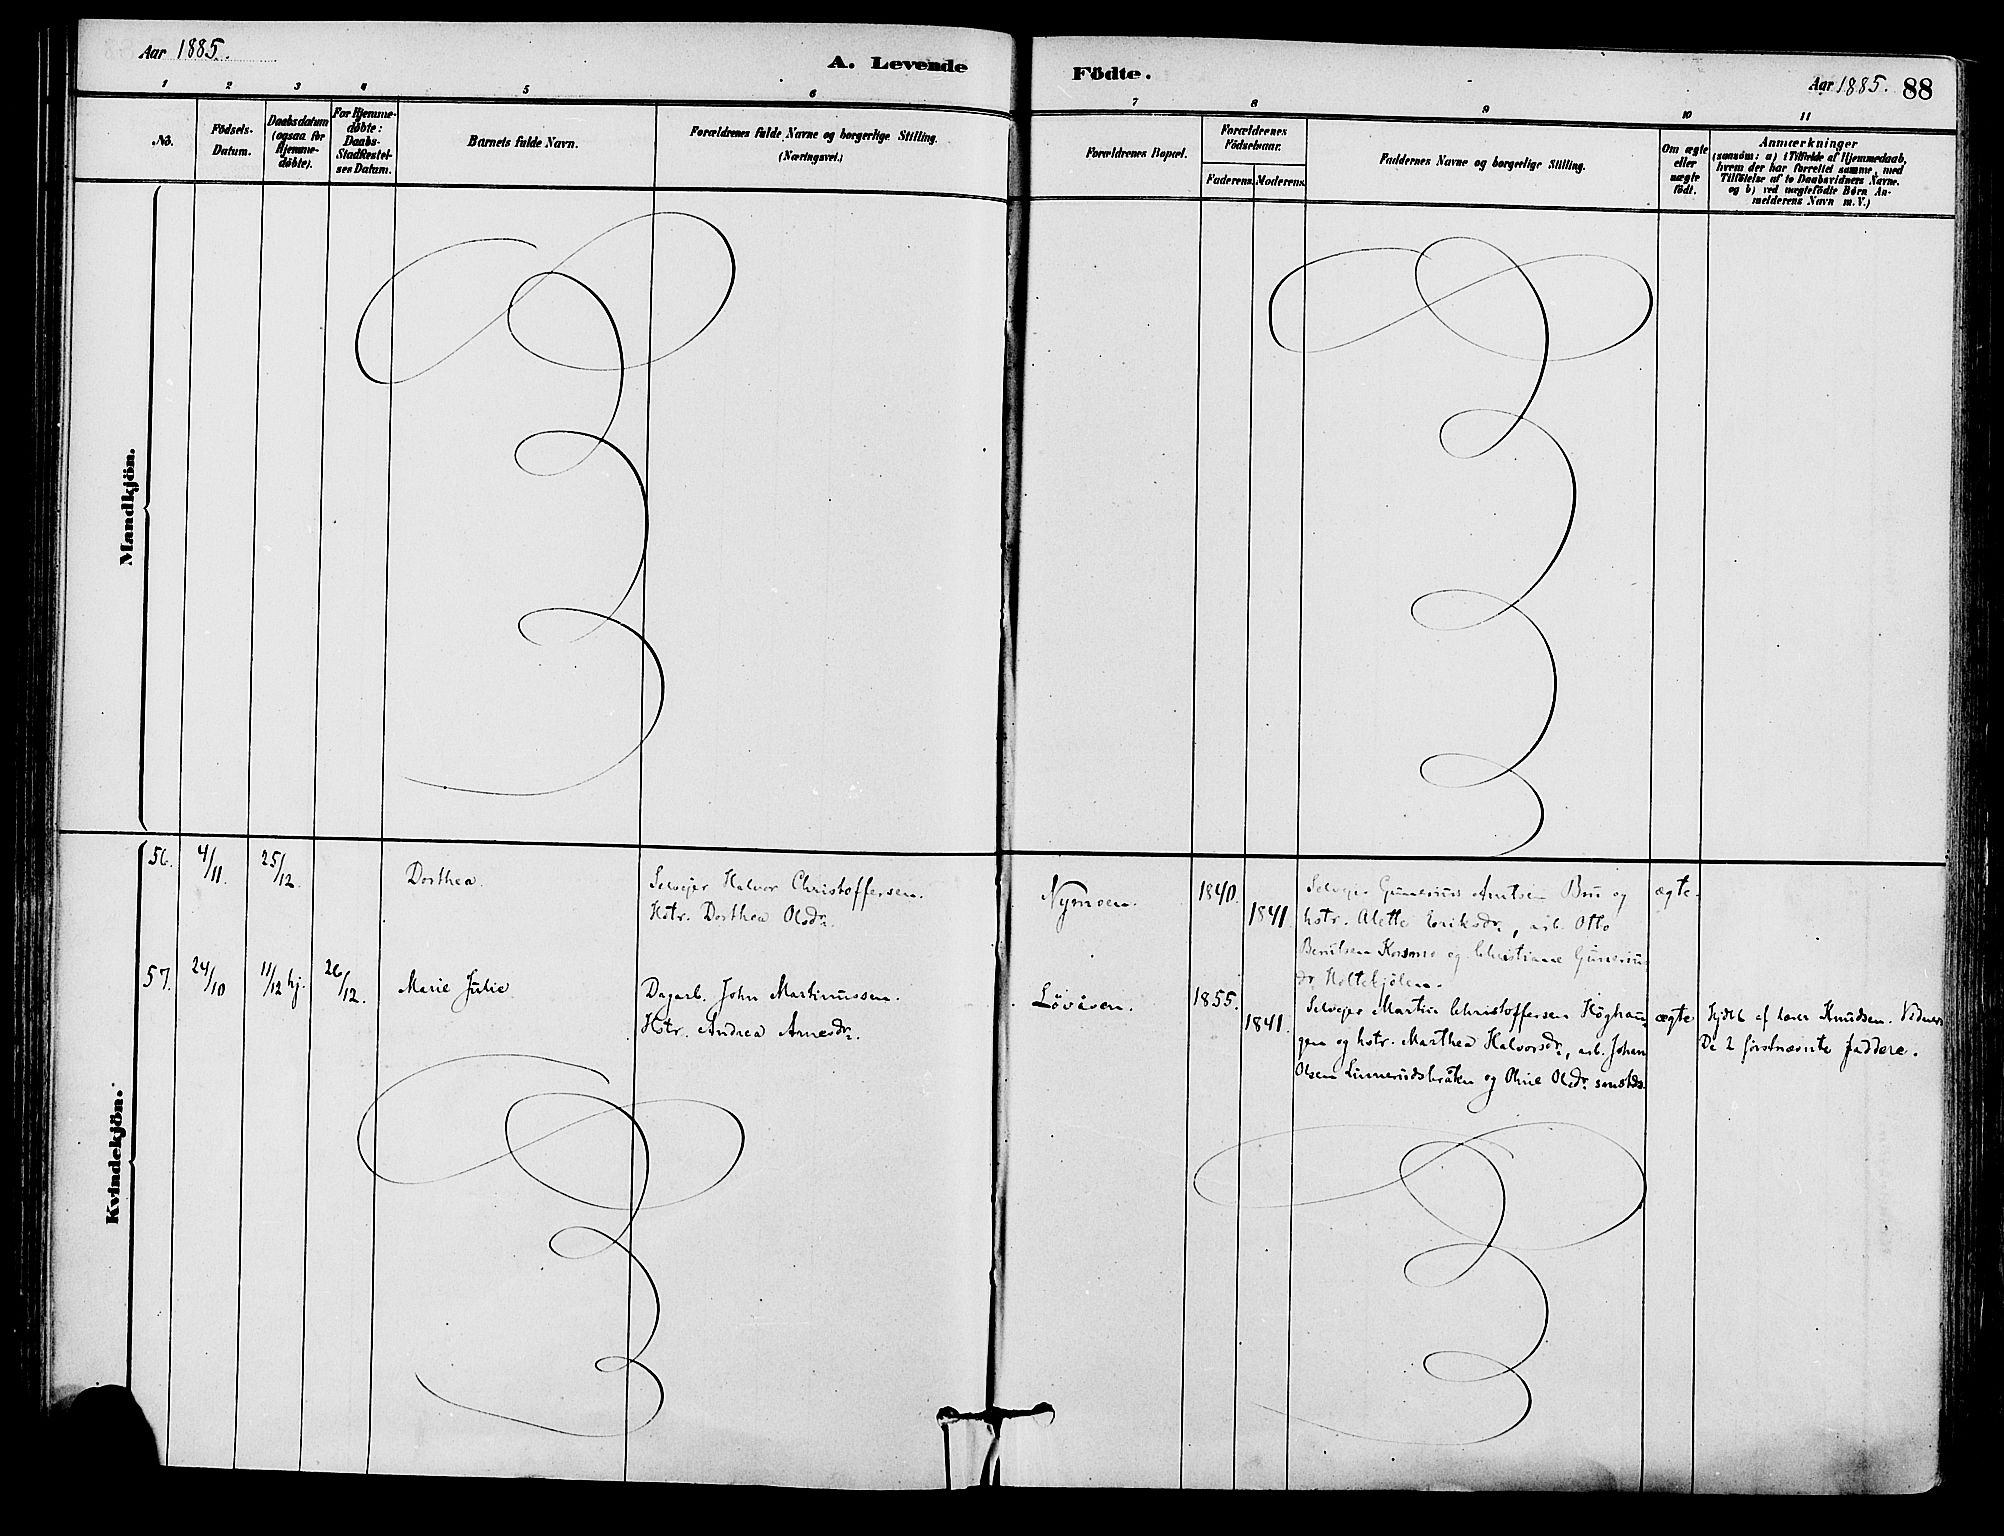 Aar 1885.
A. Levende Födte.
Aar 1885. 88
1 2 3 4 5 6 7 8 9 10 11
No.
Födsels-
Datum.
Daabsdatum
(ogsaa for
Hjemme-
døbte).
For Hjemme-
døbte:
Daabs-
Stadfæstel-
ses Datum.
Barnets fulde Navn.
Forældrenes fulde Navne og borgerlige Stilling.
(Næringsvei.)
Forældrenes Bopæl.
Forældrenes
Födselsaar.
Faderens. Moderens.
Faddernes Navne og borgerlige Stilling.
Om ægte
eller
uægte
födt.
Anmærkninger
(saasom: a) i Tilfælde af Hjemmedaab,
hvem der har forrettet samme, med
Tilföielse af to Daabsvidners Navne.
og b) ved uægtefödte Börn An-
melderens Navn m. V.)
Mandkjön.
Kvindekjön.
56. 4/11. 25/12. Dorthea.
Selvejer Halvor Christoffersen.
Hstr. Dorthea Olsdr.
Nymoen. 1840. 1841
Selvejer Gunerius Arntsen Bru og
hstr. Alette Eriksdr., arb. Otto
Berntsen Kosmo og Christiane Gunerius
dr. Holtekjølen.
ægte.
57. 24/10 11/12 hj. 26/12. Marie Julie
Dagarb. John Martinussen.
Hstr. Andrea Arnesdr.
Løvåsen. 1855. 1841.
Selvejer Martin Christoffersen Høghau-
gen og hstr. Marthea Halvorsdr., arb. Johan
Olsen Linnerudsbråten og Oline Olsdr. smstds.
ægte
Hjdbt af lærer Knudsen. Vidner
De 2 førstnævnte faddere.